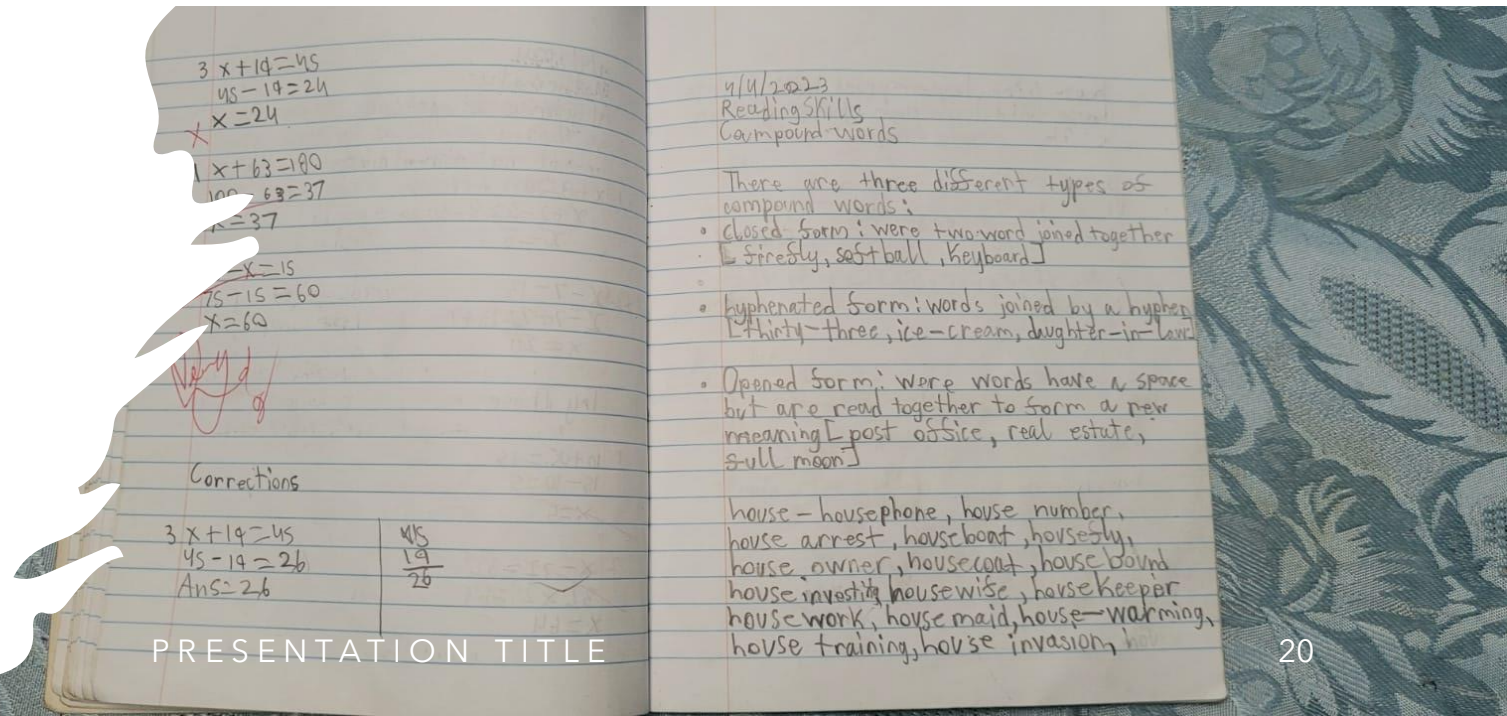 3 x+19=45
45-19=24
x=24
x+63=100
63=37
=37
-x=15
75-15=60
x=60
Very
Corrections
3 x+19=45
45-19=26
Ans=26
45
19
26
4/4/2023
Reading Skills
Compound words
There are three different types of
compound words:
• closed form: were two word joined together
[firefly, softball, keyboard]
• hyphenated form: words joined by a hyphen
[thirty-three, ice-cream, daughter-in-law]
• Opened form: were words have a space
but are read together to form a new
meaning [post office, real estate,
full moon]
house - housephone, house number,
house arrest, houseboat, housefly,
house owner, housecoat, housebound
house housewife, housekeeper
housework, housemaid, house-warming,
house training, house invasion,
PRESENTATION TITLE
20